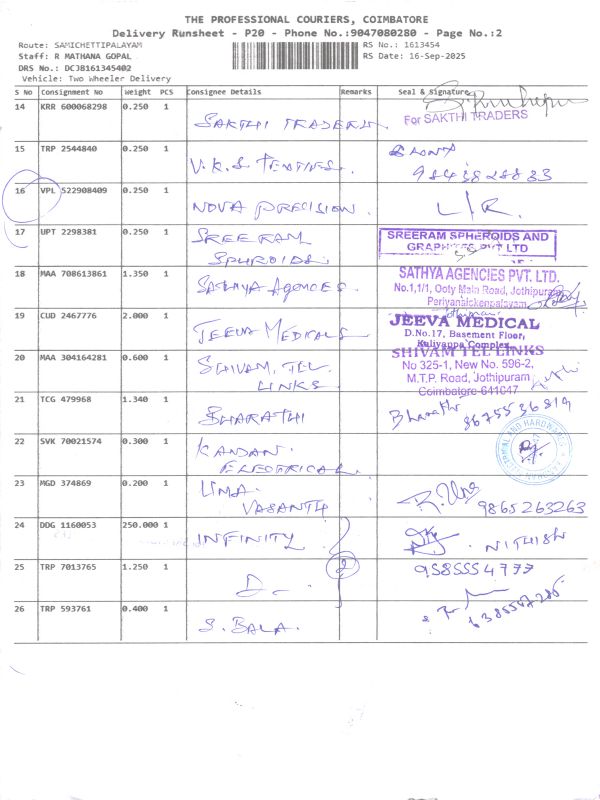 THE PROFESSIONAL COURIERS, COIMBATORE
Delivery Runsheet - P20 - Phone No.:9047080280 - Page No.:2
Route: SAMICHETTIPALAYAM RS No.: 1613454
Staff: R MATHANA GOPAL RS Date: 16-Sep-2025
DRS No.: DCJB161345402
Vehicle: Two Wheeler Delivery
S No Consignment No Weight PCS Consignee Details Remarks Seal & Signature
14 KRR 600068298 0.250 1 SAKTHI TRADERS
For SAKTHI TRADERS
15 TRP 2544840 0.250 1 V.K.S TEXTILES.
16 VPL 522908409 0.250 1 NOVA PRECISION. L/R.
17 UPT 2298381 0.250 1 SREE RAM
SPHROIDS.
SREERAM SPHEROIDS AND
GRAPHITES PVT LTD
18 MAA 708613861 1.350 1 SATHYA AGENCIES.
SATHYA AGENCIES PVT. LTD.
No.1,1/1, Ooty Main Road, Jothipuram
Periyanaickenpalayam
19 CUD 2467776 2.000 1 JEEVA MEDICALS
JEEVA MEDICAL
D.No.17, Basement Floor,
Kuliyappa Complex
20 MAA 304164281 0.600 1 SHIVAM. TEL
LINKS
SHIVAM TEL LINKS
No 325-1, New No. 596-2,
M.T.P. Road, Jothipuram
Coimbatore-641047
21 TCG 479968 1.340 1 BHARATHI Bharathi
8675536819
22 SVK 70021574 0.300 1 KANDAN.
ELECTRICAL.
23 MGD 374869 0.200 1 UMA.
VASANTH
R. Uma
9865263263
24 DDG 1160053 250.000 1 INFINITY NITHISH
25 TRP 7013765 1.250 1 D 2 9585554777
26 TRP 593761 0.400 1 S. BALA.